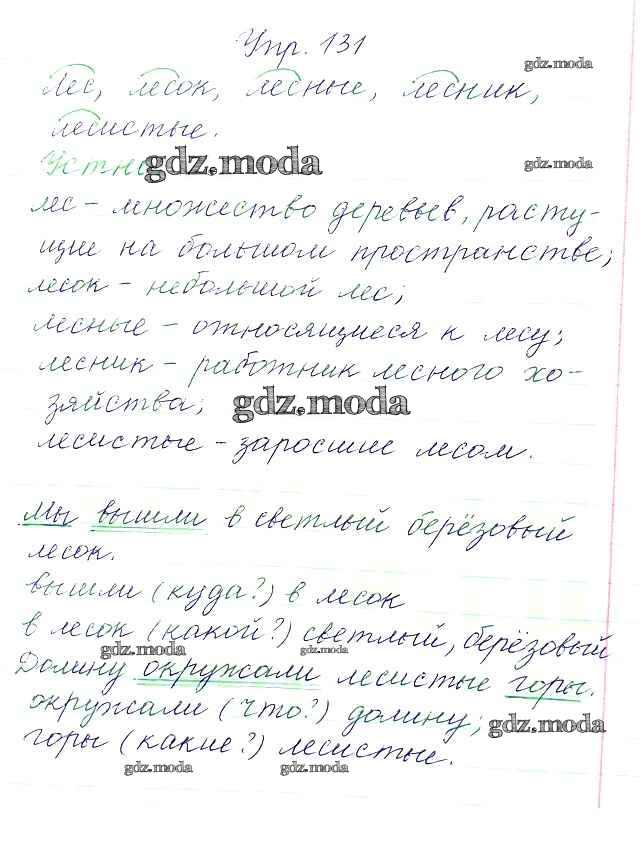 Упр. 131
gdz.moda
Лес, лесок, лесные, лесник,
лесистые.
Устн
gdz.moda
gdz.moda
лес – множество деревьев, расту-
щие на большом пространстве;
лесок – небольшой лес;
лесные – относящиеся к лесу;
лесник – работник лесного хо-
зяйства;
gdz.moda
лесистые – заросшие лесом.
Мы вышли в светлый берёзовый
лесок.
вышли (куда?) в лесок
в лесок (какой?) светлый, берёзовый
gdz.moda
gdz.moda
Долину окружали лесистые горы.
окружали (что?) долину;
gdz.moda
горы (какие?) лесистые.
gdz.moda
gdz.moda